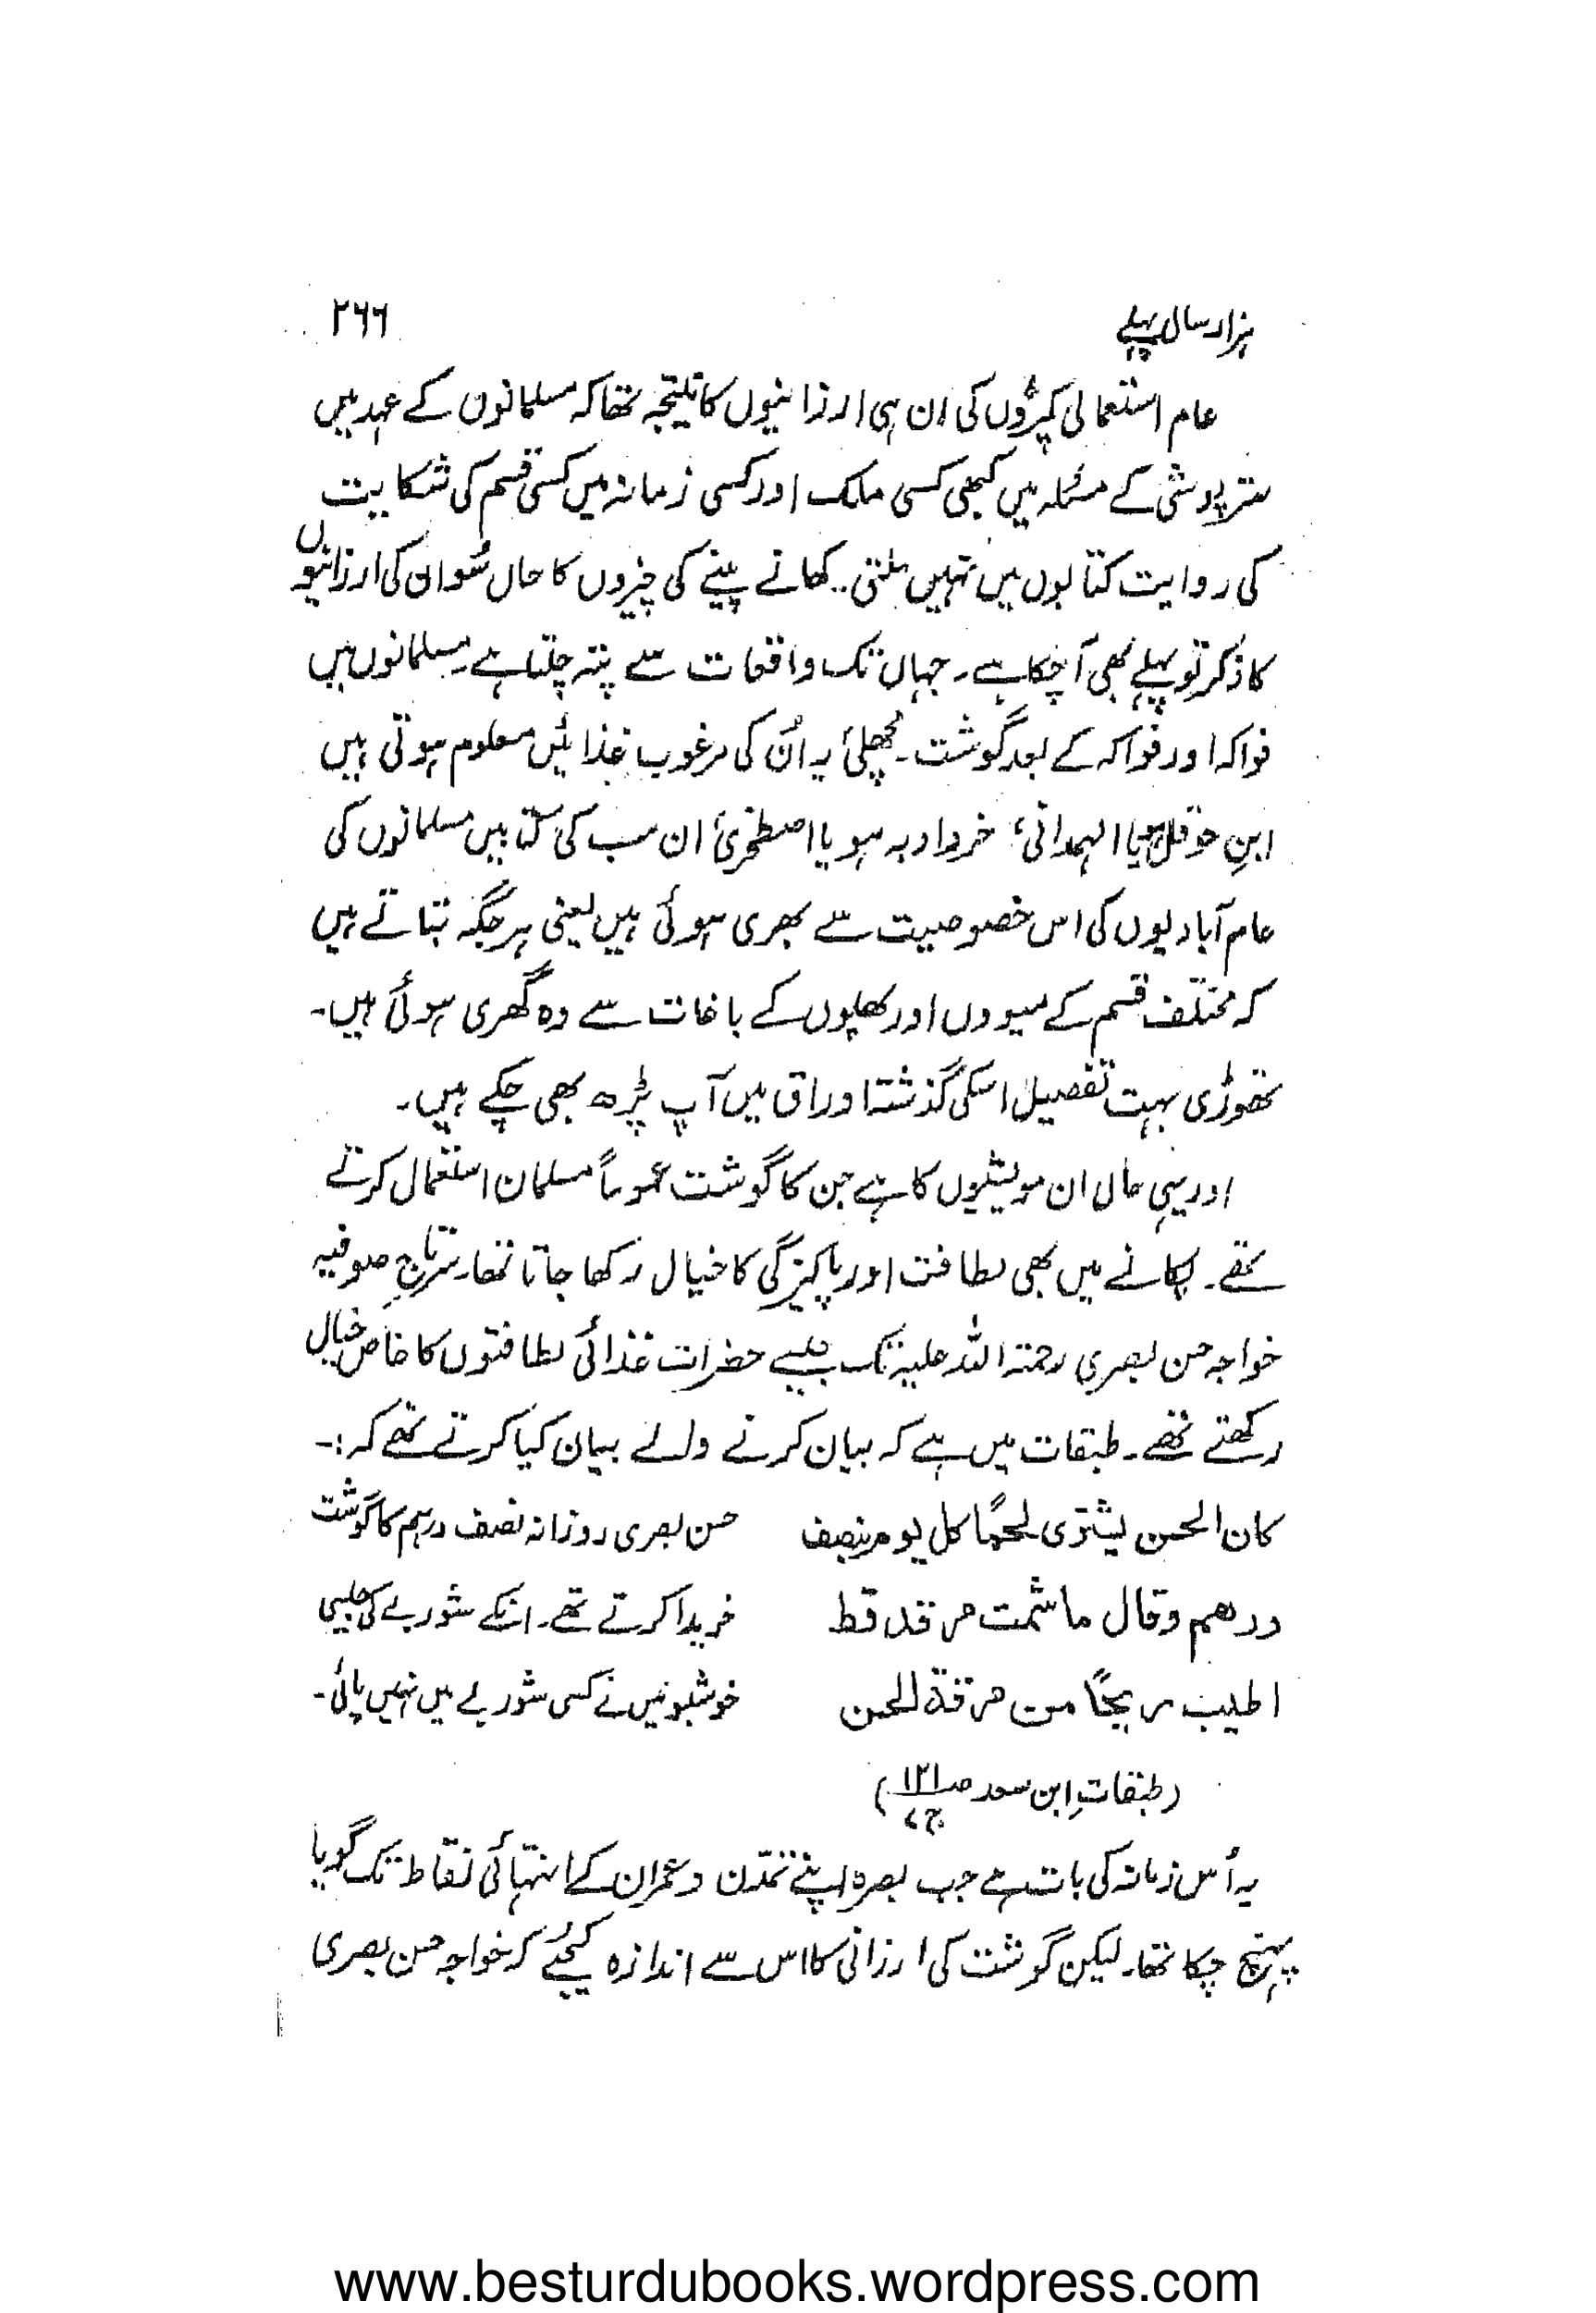 ہزار سال پہلے
۲۶۶
عام استعمالی کپڑوں کی ان ہی ارزانیوں کا نتیجہ تھا کہ مسلمانوں کے عہد میں
ستر پوشی کے مسئلہ میں کبھی کسی ملک اور کسی زمانہ میں کسی قسم کی شکایت
کی روایت کتابوں میں نہیں ملتی۔ کھانے پینے کی چیزوں کا حال سُو ان کی ارزانیوں
کا ذکر تو پہلے بھی آچکا ہے۔ جہاں تک واقعات سے پتہ چلتا ہے۔ مسلمانوں میں
فواکہ اور فواکہ کے بعد گوشت۔ مچھلی یہ اُن کی مرغوب غذائیں معلوم ہوتی ہیں
ابنِ حوقل ہو یا الہمدانی، خردادبہ ہو یا اصطخری ان سب کی کتابیں مسلمانوں کی
عام آبادیوں کی اس خصوصیت سے بھری ہوئی ہیں یعنی ہر جگہ بتاتے ہیں
کہ مختلف قسم کے میووں اور پھلوں کے باغات سے وہ گھری ہوئی ہیں۔
تھوڑی بہت تفصیل اسکی گذشتہ اوراق میں آپ پڑھ بھی چکے ہیں۔
اور یہی حال ان مویشیوں کا ہے جن کا گوشت عموماً مسلمان استعمال کرتے
تھے۔ پکانے میں بھی لطافت اور پاکیزگی کا خیال رکھا جاتا تھا۔ سرتاجِ صوفیہ
خواجہ حسن بصری رحمتہ اللہ علیہ تک جیسے حضرات غذائی لطافتوں کا خاص خیال
رکھتے تھے۔ طبقات میں ہے کہ بیان کرنے والے بیان کیا کرتے تھے کہ :-
کان الحسن یشتری لحمًا کل یوم بنصف
درھم وقال ما شمت مرقۃ قط
اطیب ریحًا من مرقۃ الحسن
(طبقاتِ ابن سعد صـ ۱۲۱ ج ۷)
حسن بصری روزانہ نصف درہم کا گوشت
خریدا کرتے تھے۔ انکے شوربے کی جیسی
خوشبو میں نے کسی شوربے میں نہیں پائی۔
یہ اُس زمانہ کی بات ہے جب بصرہ اپنے تمدّن و عمران کے انتہائی نقاط تک گویا
پہنچ چکا تھا۔ لیکن گوشت کی ارزانی کا اس سے اندازہ کیجئے کہ خواجہ حسن بصری
www.besturdubooks.wordpress.com